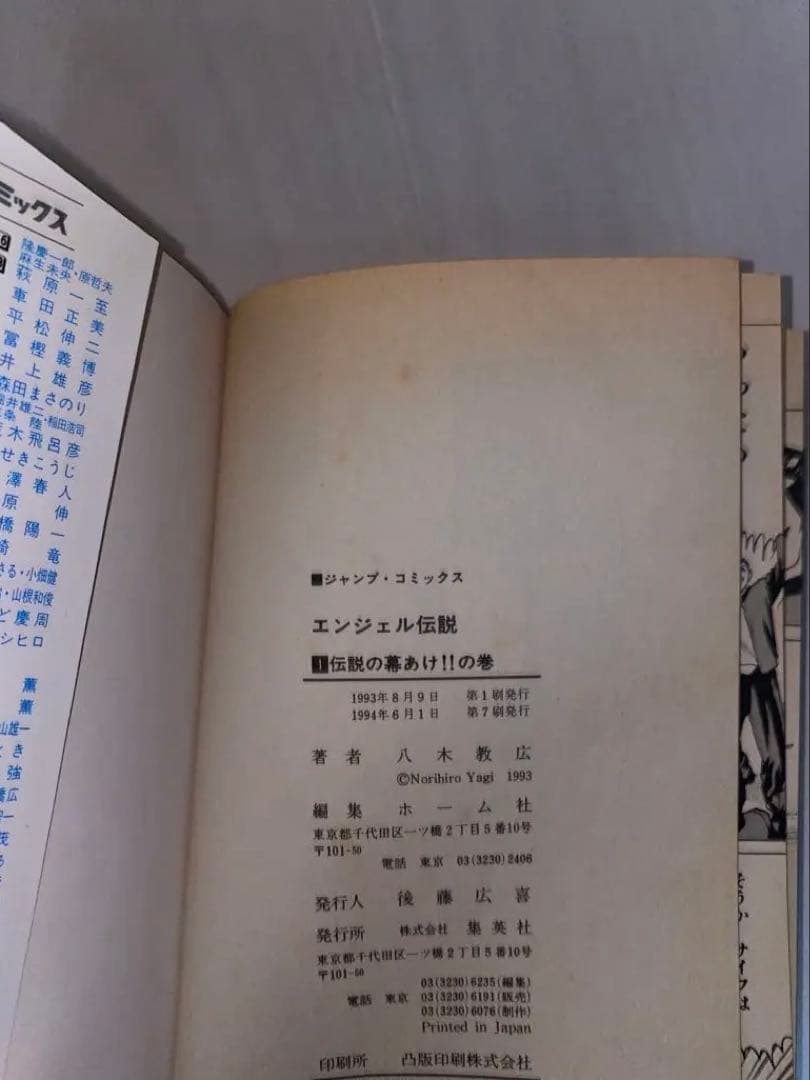 ミックス
隆慶一郎・原哲夫
麻生未央
萩原一至
車田正美
平松伸二
冨樫義博
井上雄彦
森田まさのり
稲田浩司
陸
木飛呂彦
せきこうじ
澤春人
原伸
橋陽一
竜
さる・小畑健
山根和俊
ど慶周
シヒロ
薫
薫
山雄一
とき
強
広
一
茂
■ジャンプ・コミックス
エンジェル伝説
1伝説の幕あけ!!の巻
1993年8月9日 第1刷発行
1994年6月1日 第7刷発行
著者 八木教広
©Norihiro Yagi 1993
編集 ホーム社
東京都千代田区一ツ橋2丁目5番10号
〒101-50
電話 東京 03(3230)2406
発行人 後藤広喜
発行所 株式会社 集英社
東京都千代田区一ツ橋2丁目5番10号
〒101-50
03(3230)6235(編集)
電話 東京 03(3230)6191(販売)
03(3230)6076(制作)
Printed in Japan
印刷所 凸版印刷株式会社
そうか サイフは